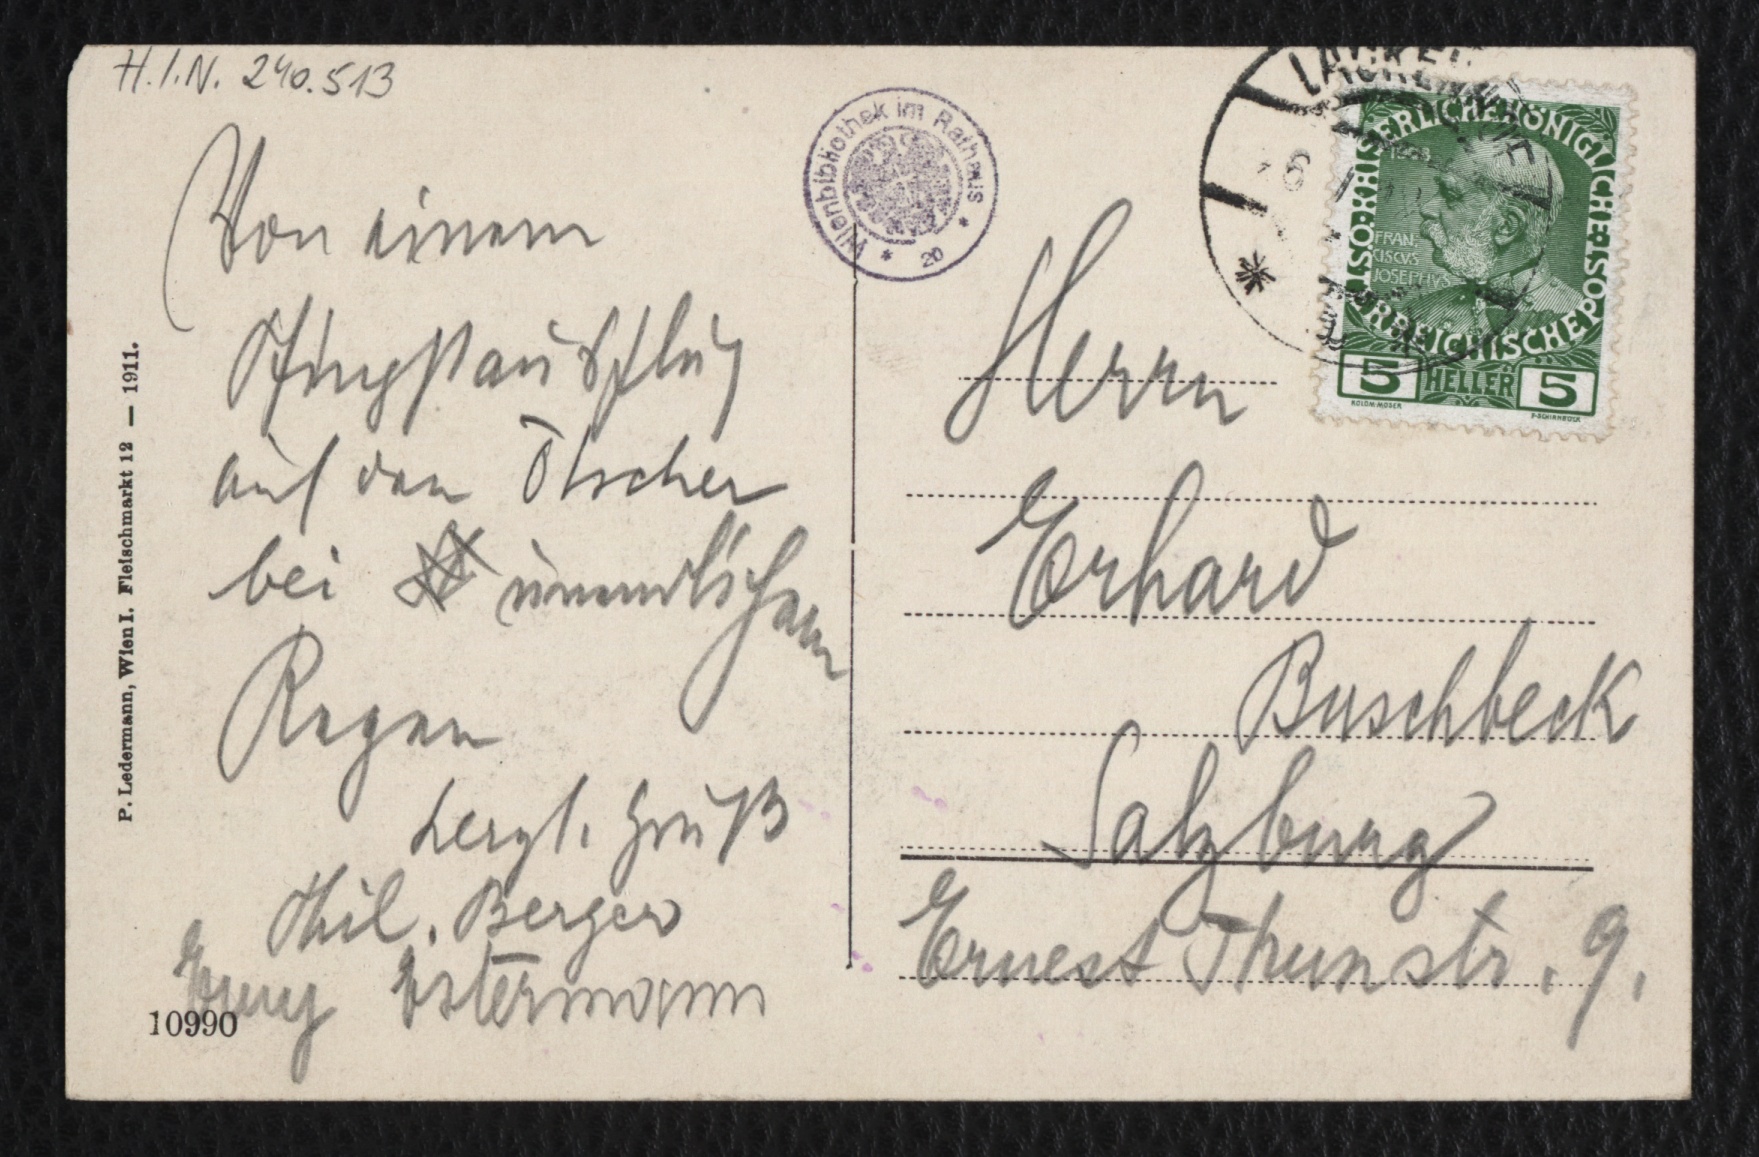 H.I.N. 240.513
Von einem
Pfingstausflug
auf den Ötscher
bei unendlichem
Regen
herzl. Gruß
Phil. Berger
Estermann
P. Ledermann, Wien I. Fleischmarkt 12 — 1911.
10990
Wienbibliothek im Rathaus
* 20 *
KAISERLICHE KÖNIGLICHE ÖSTERREICHISCHE POST
1908
FRAN
CISCVS
JOSEPHVS
5 HELLER 5
KOLOM. MOSER
F. SCHIRNBÖCK
Herrn
Erhard
Buschbeck
Salzburg
Ernest Thunstr. 9.